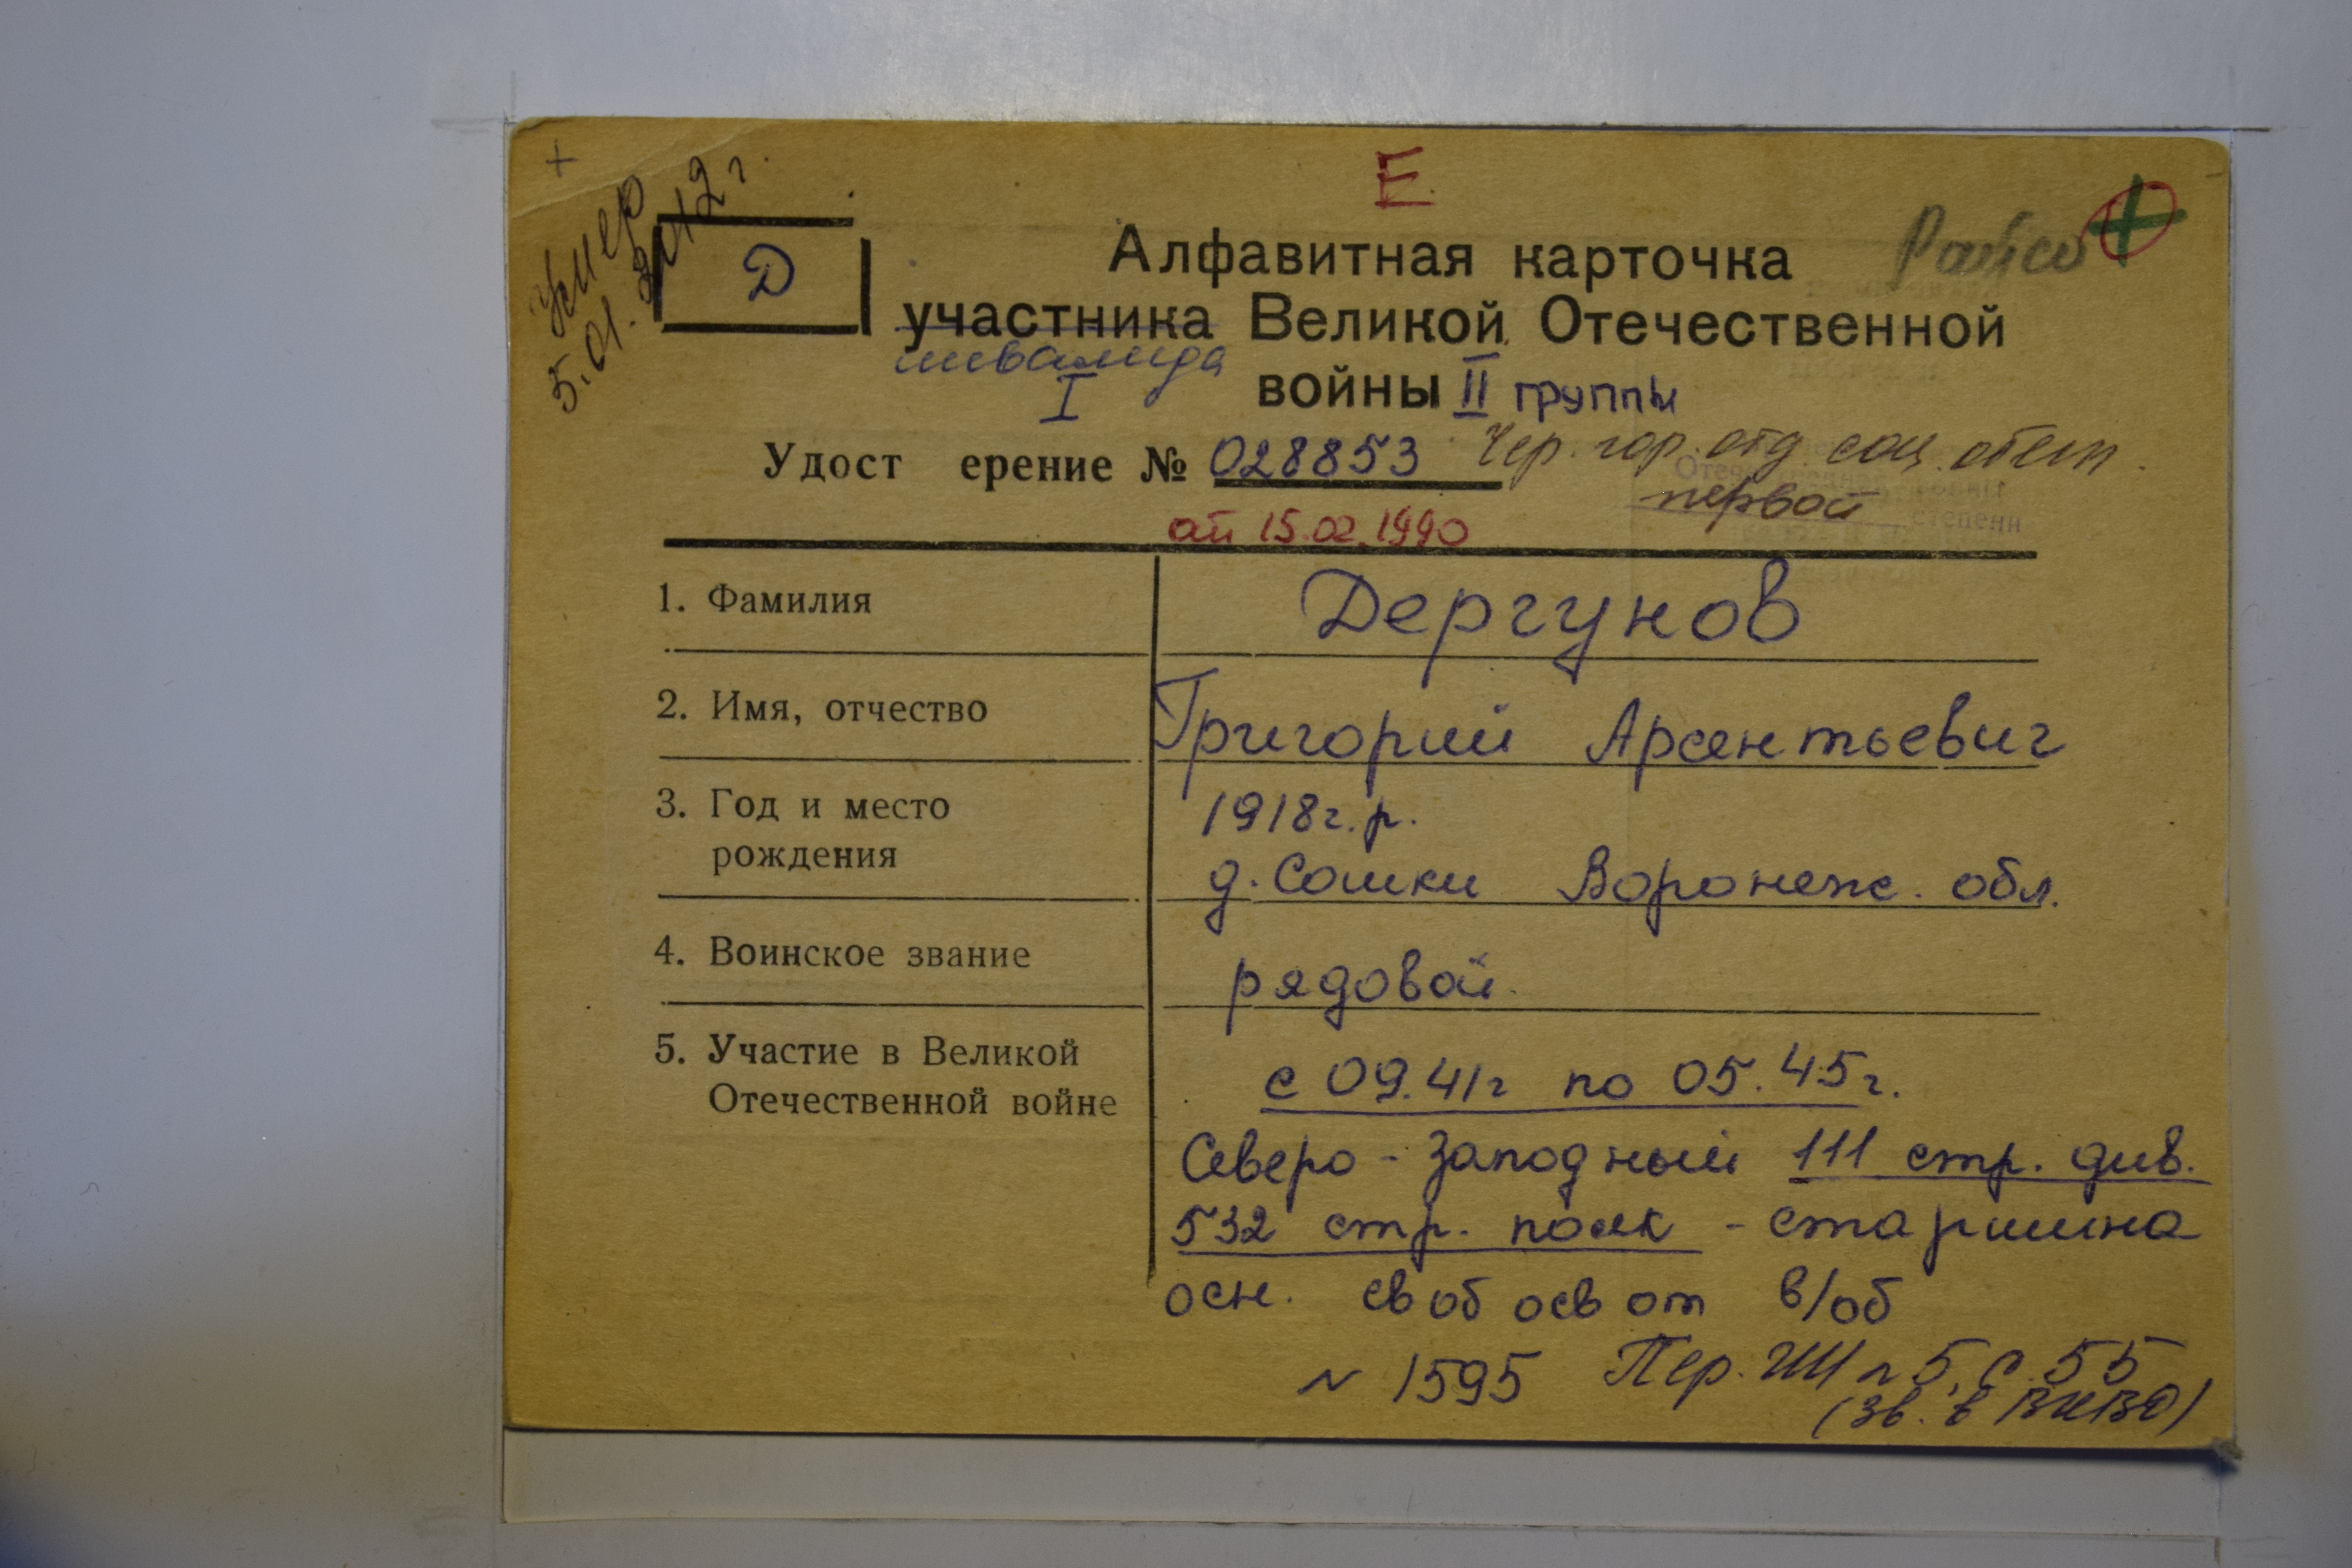 Умер
5.01.2012 г.
Е
Д
Алфавитная карточка
Райсо
участника Великой Отечественной
инвалида
I
войны II группы
Удост ерение № 028853 Чер. гор. отд соц. обесп.
первой
степени
от 15.02.1990
1. Фамилия Дергунов
2. Имя, отчество Григорий Арсентьевич
3. Год и место 1918г.р.
рождения д. Сошки Воронеж. обл.
4. Воинское звание рядовой
5. Участие в Великой с 09.41г по 05.45г.
Отечественной войне
Северо-Западный 111 стр. див.
532 стр. полк - старшина
осн. своб осв от в/об
N 1595 Пер. № 5, с 55
(зв. в